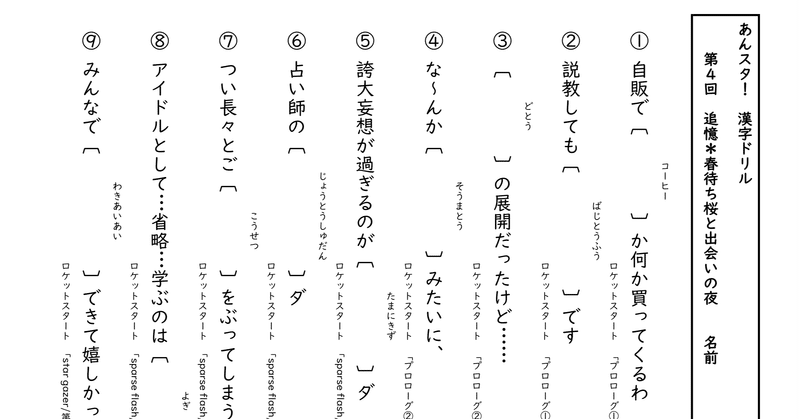 あんスタ！ 漢字ドリル
第4回 追憶＊春待ち桜と出会いの夜 名前
コーヒー
① 自販で〔 〕か何か買ってくるわ
ロケットスタート 「プロローグ①
ばじとうふう
② 説教しても〔 〕です
ロケットスタート 「プロローグ①
どとう
③〔 〕の展開だったけど……
ロケットスタート 「プロローグ②
そうまとう
④ な〜んか〔 〕みたいに、
ロケットスタート 「プロローグ②
たまにきず
⑤ 誇大妄想が過ぎるのが〔 〕ダ
ロケットスタート 「sparse flash
じょうとうしゅだん
⑥ 占い師の〔 〕ダ
ロケットスタート 「sparse flash
こうせつ
⑦ つい長々とご〔 〕をぶってしまう
ロケットスタート 「sparse flash
よぎ
⑧ アイドルとして…省略…学ぶのは〔
ロケットスタート 「sparse flash
わきあいあい
⑨ みんなで〔 〕できて嬉しかっ
ロケットスタート 「star gazer/第